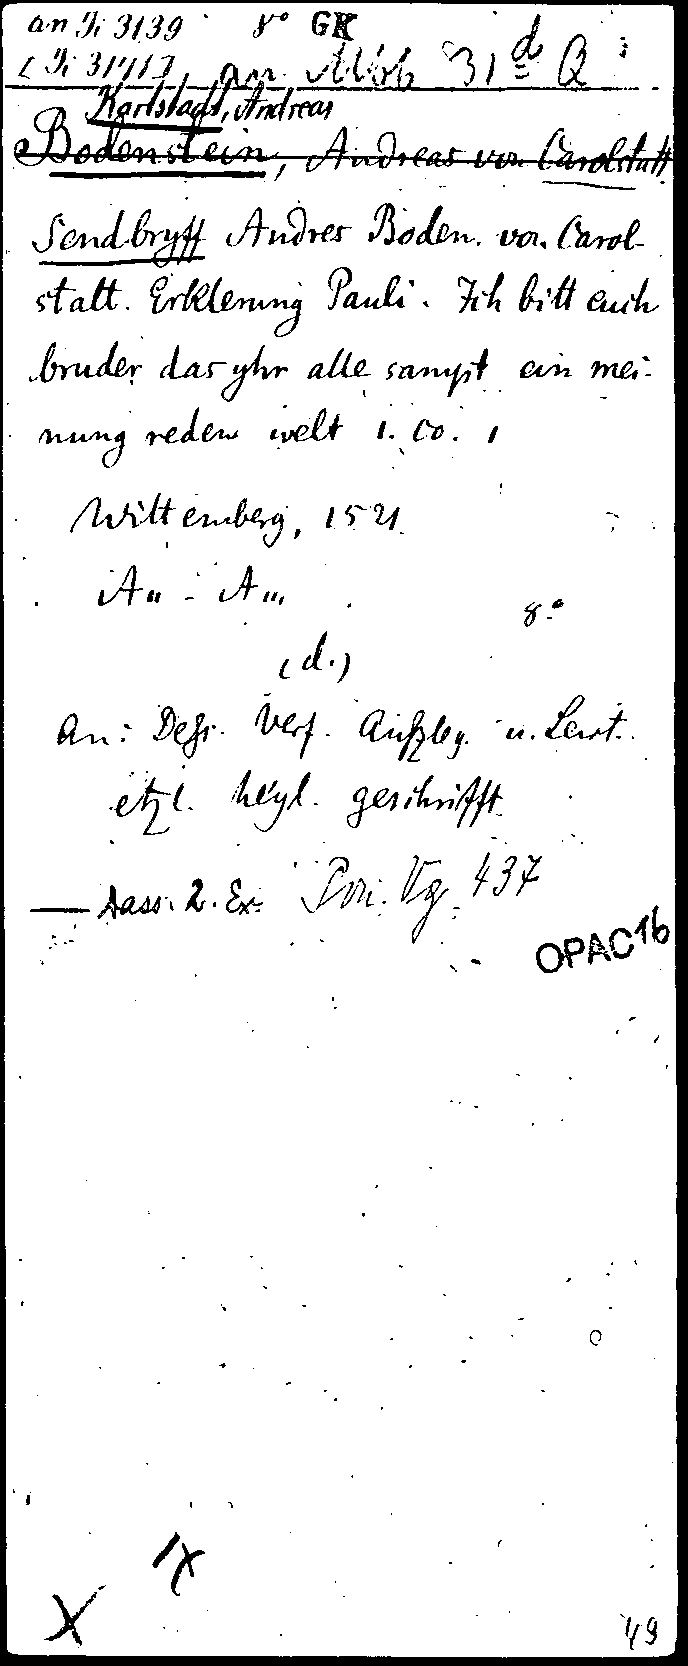 an Ji 3139 8° GK
(Ji 31417, an 31 d Q
Karlstadt, Andreas
Bodenstein, Andreas von Carolstatt
Sendbryff Andres Boden. von Carol-
statt. Erklerung Pauli. Ich bitt euch
bruder das yhr alle sampt ein mei-
nung reden welt 1. Co. 1
Wittemberg, 1521
A - A 8°
(d.)
An: Dess. Verf. Auszleg. u.
etzl. heyl. geschrifft
— Dass. 2. Ex. Vg. 437
OPAC 16
IX
X
49